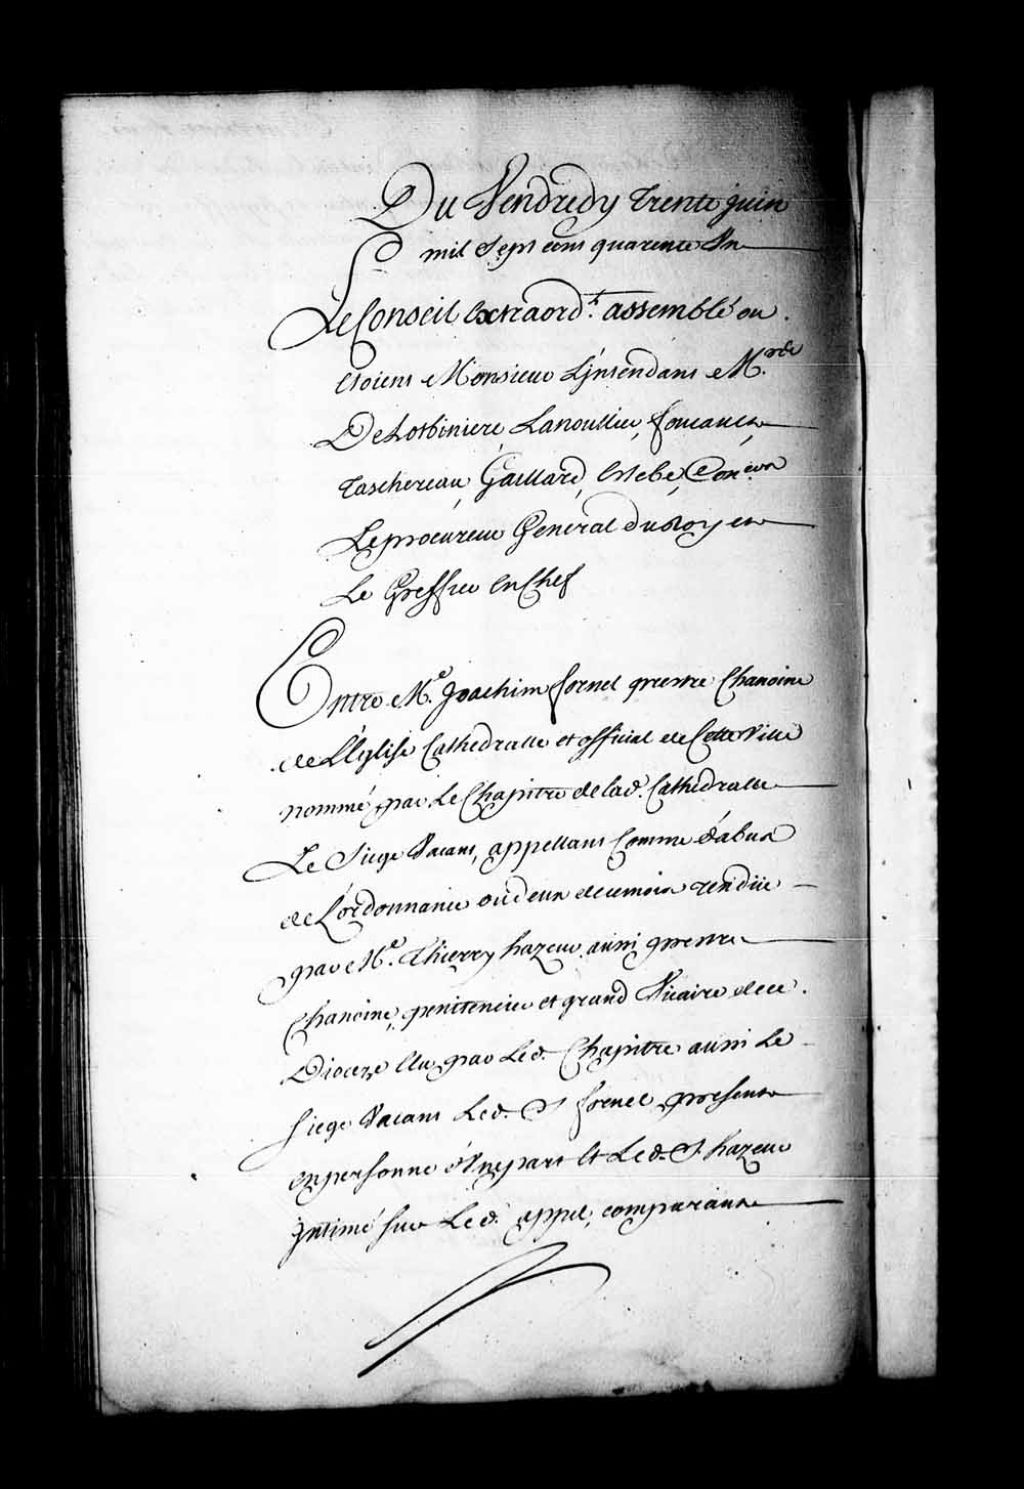 Du Vendredy trente juin
mil Sept cent quarente Un
Le Conseil Extraord.t assemblé ou
Etoient Monsieur L'jntendant M.rs de
De Lotbiniere, Lanoullier, foucault
taschereau, Gaillard, Estebe, Con.ers
Le procureur General du Roy et
Le Greffier En Chef
Entre M.e Joachim fornel prestre Chanoine
de L'Eglise Cathedralle et official de Cette Ville
nommé par Le Chapitre de lad. Cathedralle
Le Siege Vacant, appellant Comme d'abus
de L'ordonnance du deux de ce mois rendüe
par M.e Thierry hazeur aussi prestre
Chanoine, penitencier et grand Vicaire de ce
Dioceze Elu par Led. Chapitre aussi Le
siege Vacant Led. S. fornel present
en personne d'Une part Et Led. S. hazeur
jntimé sur Led. appel, comparant